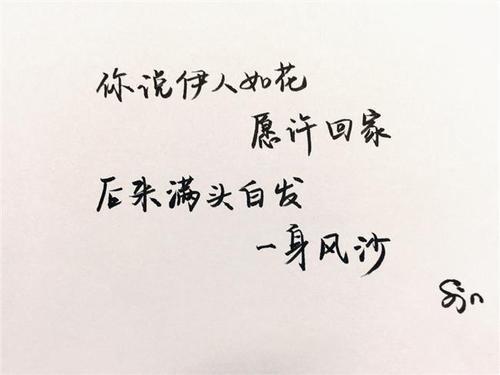 你说伊人如花
愿许回家
后来满头白发
一身风沙
Sjn